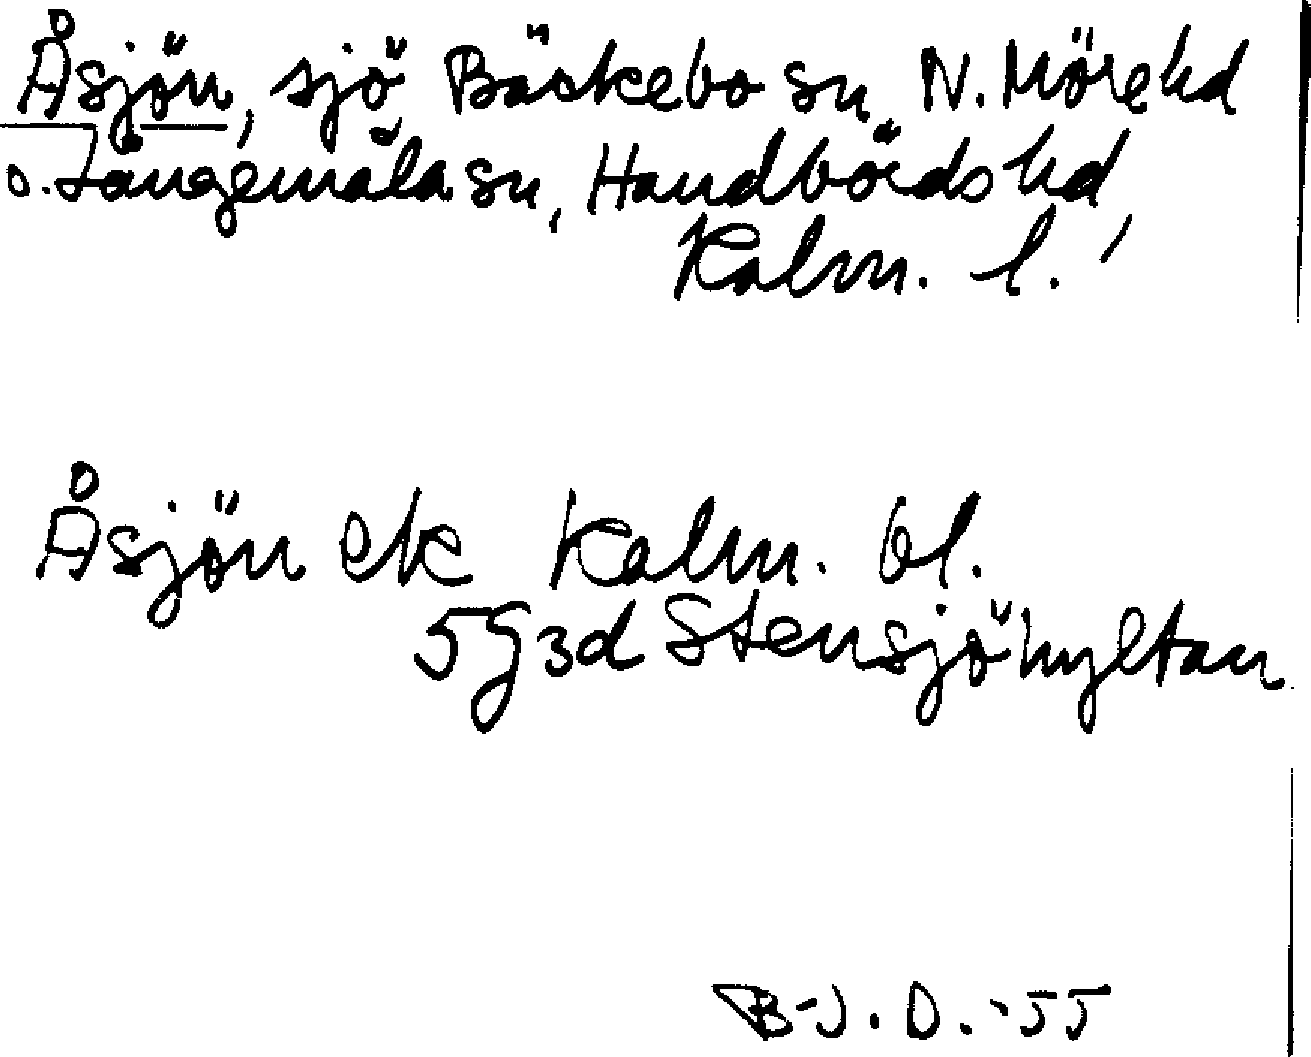 Åsjön, sjö Bäckebo sn, N. Möre hd
o. Långemåla sn, Handbörds hd,
Kalm. l.
Åsjön ek Kalm. bl.
5G3d Stensjöhyltan
B-J. D. -55